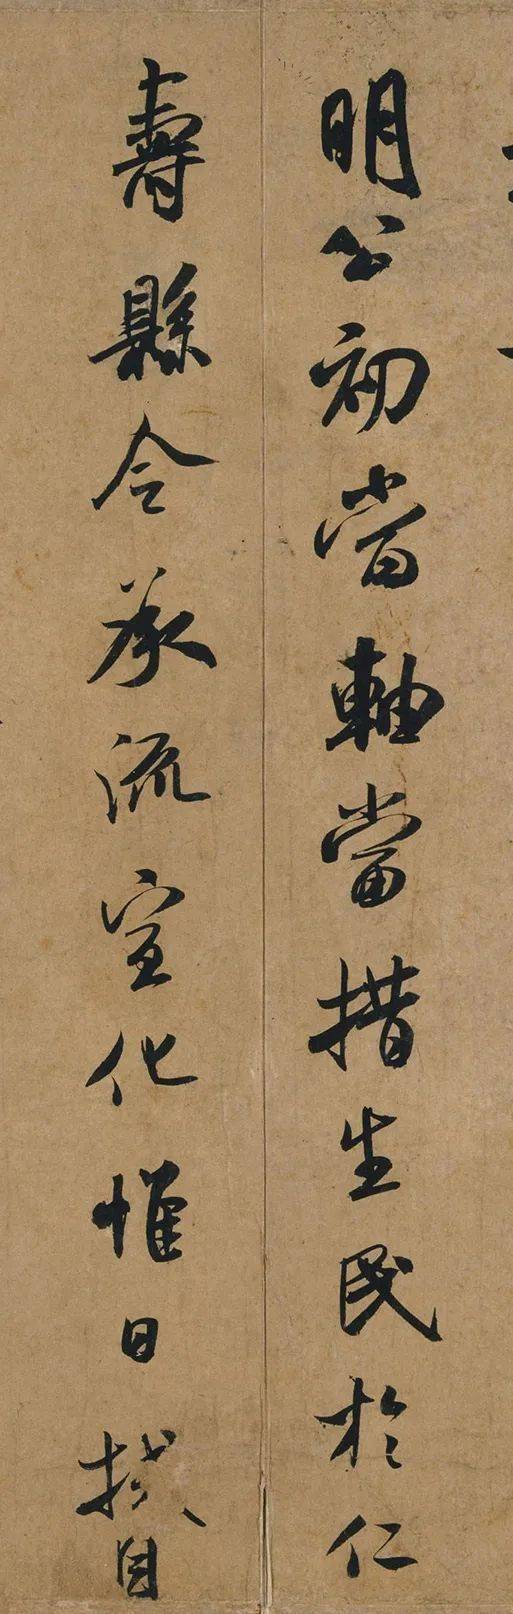 明公初當軸當措生民於仁
壽縣令承流宣化惟日拭目